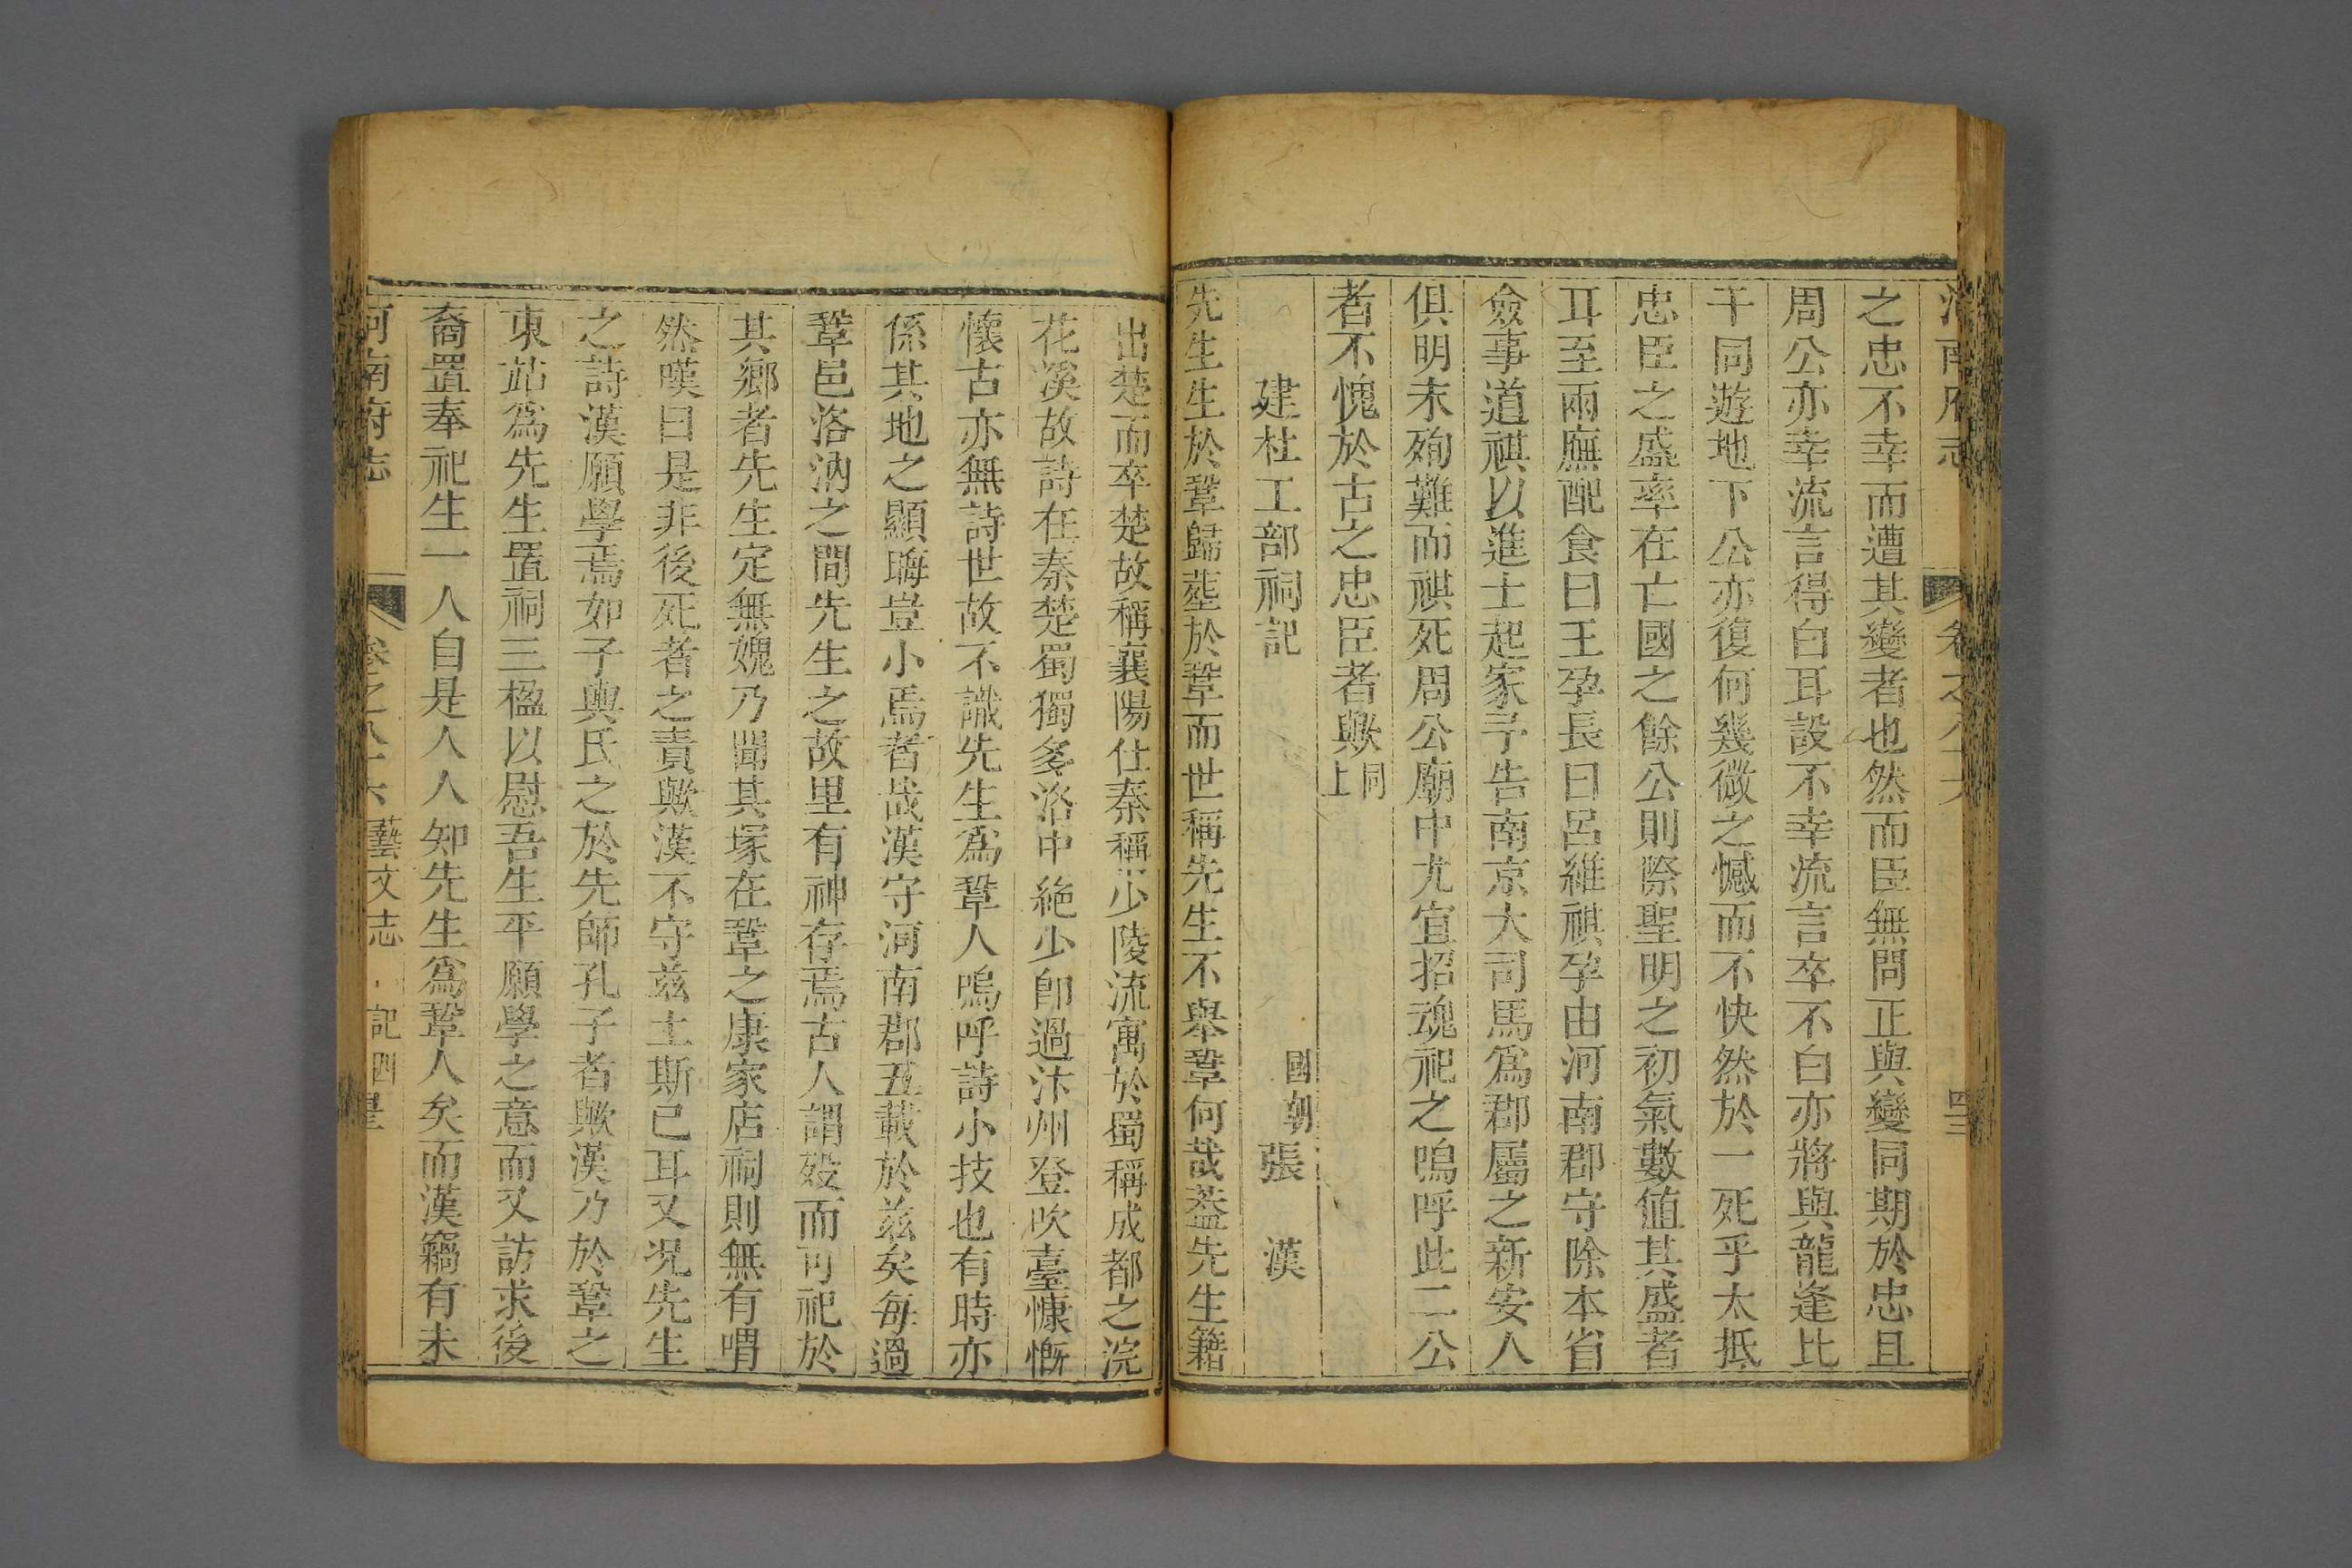 之忠不幸而遭其變者也然而臣無問正與變同期於忠且
周公亦幸流言得白耳設不幸流言卒不白亦將與龍逢比
干同遊地下公亦復何幾微之憾而不快然於一死乎太抵
忠臣之盛率在亡國之餘公則際聖明之初氣數值其盛者
耳至兩廡配食曰王孕長曰呂維祺孕由河南郡守除本省
僉事道祺以進士起家予告南京大司馬爲郡屬之新安人
俱明末殉難而祺死周公廟中尤宜招魂祀之嗚呼此二公
者不愧於古之忠臣者歟同上
建杜工部祠記 國朝張漢
先生生於鞏歸葬於鞏而世稱先生不舉鞏何哉葢先生籍
出楚而卒楚故稱襄陽仕秦稱少陵流寓於蜀稱成都之浣
花溪故詩在秦楚蜀獨多洛中絶少卽過汴州登吹臺慷慨
懷古亦無詩世故不識先生爲鞏人嗚呼詩小技也有時亦
係其地之顯晦豈小焉者哉漢守河南郡五載於兹矣每過
鞏邑洛汭之間先生之故里有神存焉古人謂歿而可祀於
其鄉者先生定無媿乃聞其塚在鞏之康家店祠則無有喟
然嘆曰是非後死者之責歟漢不守兹土斯已耳又况先生
之詩漢願學焉如子輿氏之於先師孔子者歟漢乃於鞏之
東站爲先生置祠三楹以慰吾生平願學之意而又訪求後
裔置奉祀生一人自是人人知先生爲鞏人矣而漢竊有未
河南府志 卷之八十六 藝文志 記四